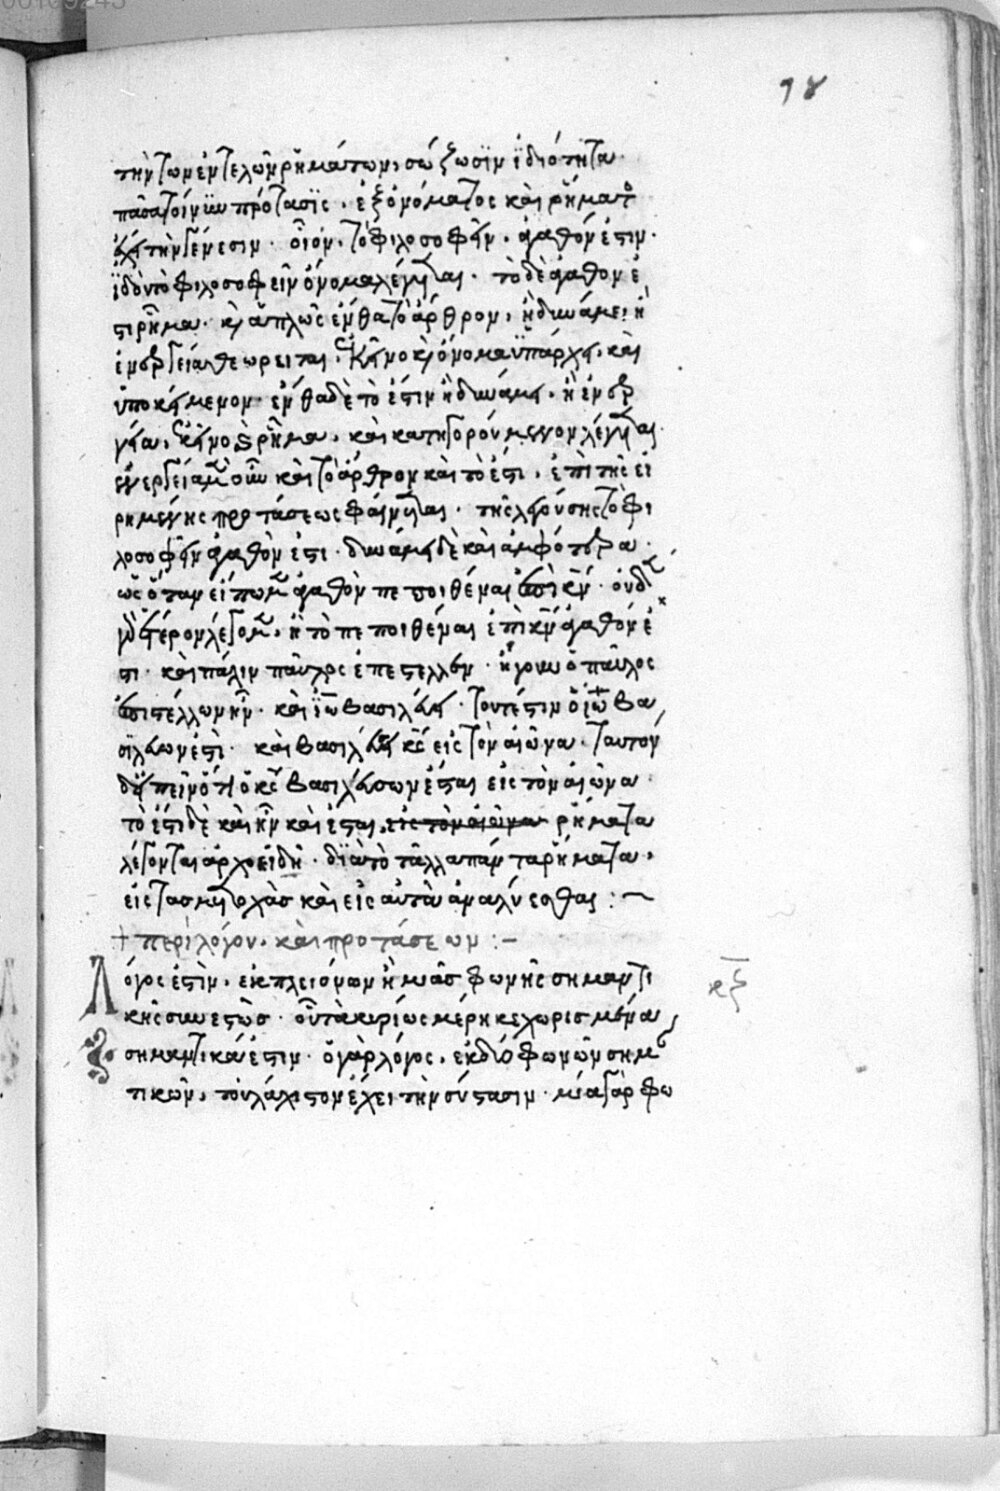 18
τὴν τῶν ἐντελῶν ῥημάτων, σώζωσιν ἰδιότητα.
πᾶσα τοίνυν πρότασις, ἐξ ὀνόματος καὶ ῥήματος
ἔχει τὴν γένεσιν. οἷον, τὸ φιλοσοφεῖν, ἀγαθόν ἐστιν.
ἰδοὺ τὸ φιλοσοφεῖν ὄνομα λέγεται. τὸ δὲ ἀγαθὸν ἐ
στι ῥῆμα. καὶ ἁπλῶς ἔνθα τὸ ἄρθρον, ἢ δυνάμει ἢ
ἐνεργείᾳ θεωρεῖται, ἐκεῖνο καὶ ὄνομα ὑπάρχει, καὶ
ὑποκείμενον. ἔνθα δὲ τὸ ἐστὶν ἢ δυνάμει, ἢ ἐνερ
γείᾳ, ἐκεῖνο ῥῆμα, καὶ κατηγορούμενον λέγεται.
ἐνεργείᾳ μὲν οὖν καὶ τὸ ἄρθρον καὶ τὸ ἐστι, ἐπὶ τῆς εἰ
ρημένης προτάσεως φαίνεται. τῆς λεγούσης τὸ φι
λοσοφεῖν ἀγαθὸν ἐστι. δυνάμει δὲ καὶ ἀμφότερα.
ὡς ὅταν εἴπωμεν ἀγαθὸν πεποιθέναι ἐπὶ κν. οὐδὲν
ἕτερον λέγομεν, ἢ τὸ πεποιθέναι ἐπὶ κν ἀγαθόν ἐ
στι. καὶ πάλιν παῦλος ἐπέστελλεν. ἤγουν ὁ παῦλος
ἐπιστέλλων ἦν. καὶ ἰω βασιλεύει. τουτέστιν ὁ ἰω βα
σιλεύων ἐστὶ. καὶ βασιλεύσει κς εἰς τὸν αἰῶνα. ταυτὸν
δ' εἰπεῖν ὅτι ὁ κς βασιλεύσων ἔσται εἰς τὸν αἰῶνα.
τὸ ἐστὶ δὲ καὶ ἦν καὶ ἔσται, εἰς τὸν αἰῶνα ῥήματα
λέγονται ἀρχοειδῆ. διὰ τὸ τἄλλα πάντα ῥήματα,
εἰς ταύτας ἀρχὰς καὶ εἰς αὐτὰ ἀναλύεσθαι :~
+ περὶ λόγου, καὶ προτάσεων :-
Λόγος ἐστὶν, ἐκ πλειόνων ἢ μιᾶς φωνῆς σημαντι
κῆς συνεστὼς. οὗ τὰ κυρίως μέρη κεχωρισμένα,
σημαντικά ἐστιν. ὁ γὰρ λόγος, ἐκ δύο φωνῶν σημαν
τικῶν, τοὐλάχιστον ἔχει τὴν σύστασιν. μία γὰρ φω
κξ